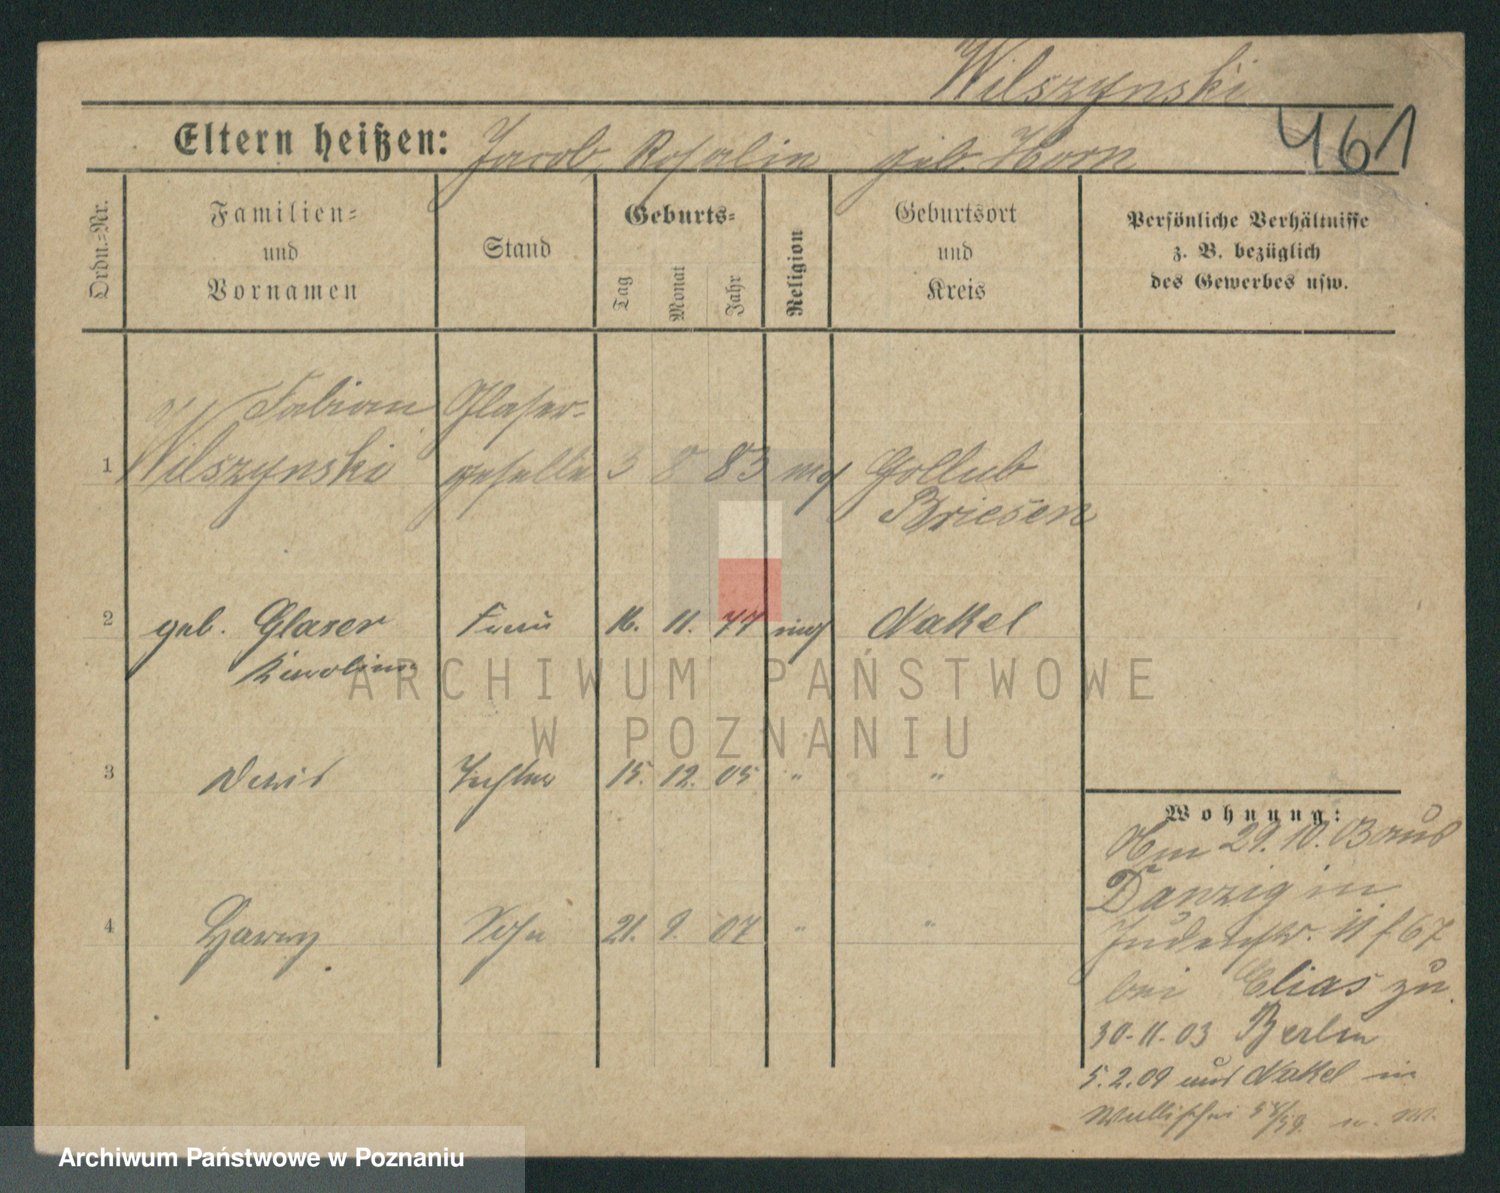 Wilszynski
Eltern heißen: Jacob, Rosalin geb. Horn
461
Ordn.=Nr.
Familien=
und
Vornamen
Stand
Geburts=
Tag
Monat
Jahr
Religion
Geburtsort
und
Kreis
Persönliche Verhältnisse
z. B. bezüglich
des Gewerbes usw.
Fabian Glaser-
1 Wilszynski geselle 3 8 83 mos Gollub
Briesen
2 geb. Glaser Frau 16. 11. 77 mos Nakel
3 Tochter 15. 12. 05 " "
4 Harry Sohn 21. 9. 07 " "
Wohnung:
Am 29.10.03 aus
Danzig in
Judenstr. 11 f 67
bei Elias zu.
30.11.03 Berlin
5.2.09 aus Nakel in
Wallischei 58/59.
ARCHIWUM PAŃSTWOWE
W POZNANIU
Archiwum Państwowe w Poznaniu